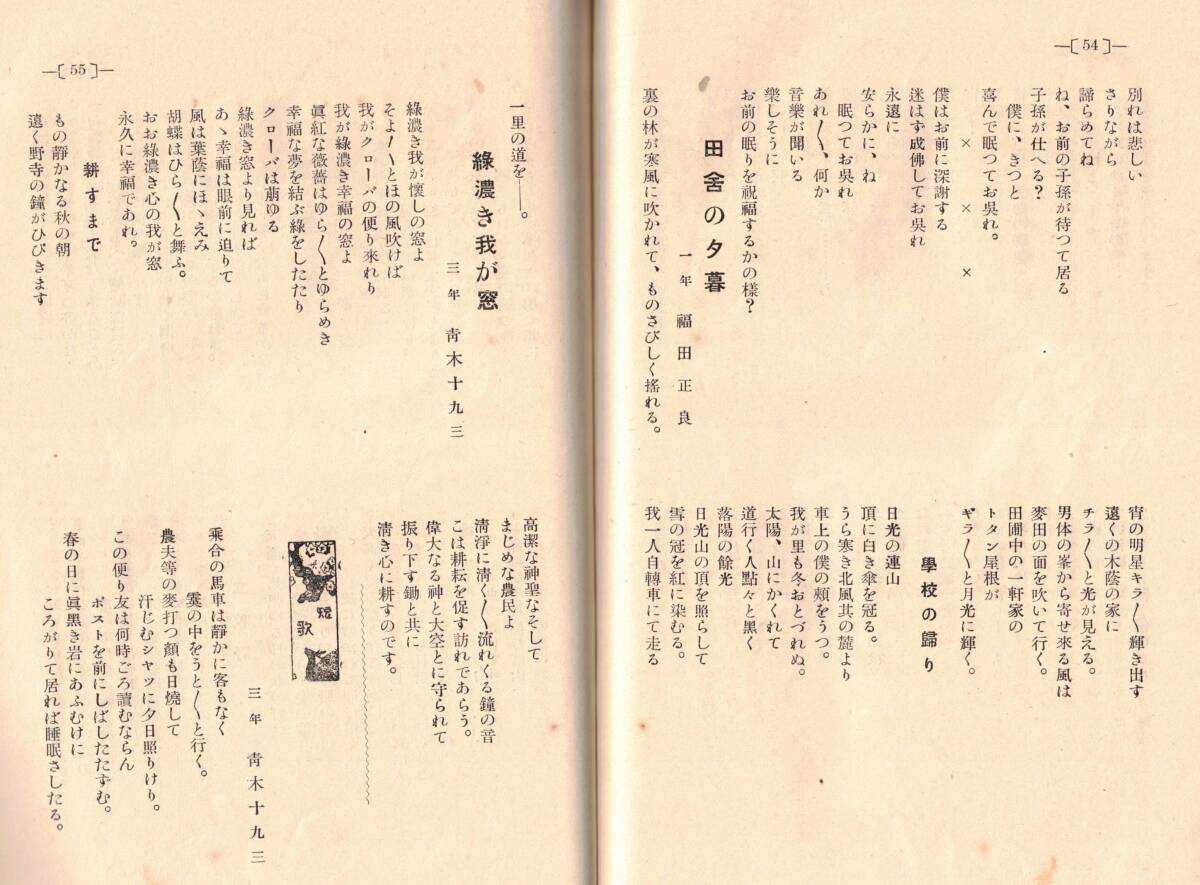 —〔 54 〕—
別れは悲しい
さりながら
諦らめてね
ね、お前の子孫が待つて居る
子孫が仕へる?
僕に、きつと
喜んで眠つてお呉れ。
× × ×
僕はお前に深謝する
迷はず成佛してお呉れ
永遠に
安らかに、ね
眠つてお呉れ
あれ〳〵、何か
音樂が聞いる
樂しそうに
お前の眠りを祝福するかの樣?
田舍の夕暮
一年 福田正良
裏の林が寒風に吹かれて、ものさびしく搖れる。
宵の明星キラ〳〵輝き出す
遠くの木蔭の家に
チラ〳〵と光が見える。
男体の峯から寄せ來る風は
麥田の面を吹いて行く。
田圃中の一軒家の
トタン屋根が
ギラ〳〵と月光に輝く。
學校の歸り
日光の連山
頂に白き傘を冠る。
うら寒き北風其の麓より
車上の僕の頰をうつ。
我が里も冬おとづれぬ。
太陽、山にかくれて
道行く人點々と黑く
落陽の餘光
日光山の頂を照らして
雪の冠を紅に染むる。
我一人自轉車にて走る
—〔 55 〕—
一里の道を——。
綠濃き我が窓
三年 靑木十九三
綠濃き我が懷しの窓よ
そよ〳〵とほの風吹けば
我がクローバの便り來れり
我が綠濃き幸福の窓よ
眞紅な薇薔はゆら〳〵とゆらめき
幸福な夢を結ぶ綠をしたたり
クローバは萠ゆる
綠濃き窓より見れば
あゝ幸福は眼前に迫りて
風は葉蔭にほゝえみ
胡蝶はひら〳〵と舞ふ。
おお綠濃き心の我が窓
永久に幸福であれ。
耕すまで
もの靜かなる秋の朝
遠く野寺の鐘がひびきます
高潔な神聖なそして
まじめな農民よ
淸淨に淸く〳〵流れくる鐘の音
こは耕耘を促す訪れであらう。
偉大なる神と大空とに守られて
振り下す鋤と共に
淸き心に耕すのです。
短歌
三年 靑木十九三
乘合の馬車は靜かに客もなく
霙の中をうと〳〵と行く。
農夫等の麥打つ顏も日燒して
汗じむシャツに夕日照りけり。
この便り友は何時ごろ讀むならん
ポストを前にしばしたたずむ。
春の日に眞黑き岩にあふむけに
ころがりて居れば睡眠さしたる。